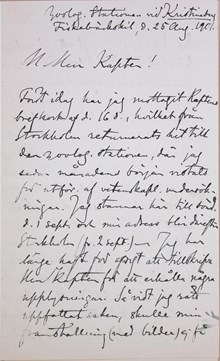 Zoolog. Stationen vid Kristineberg
Fiskebäckskil, d. 25 Aug. 1901.
Herr Kapten!
Först idag har jag mottagit Kaptens
brefkort af d. 16 d:s, hvilket från
Stockholm returnerats hit till
den zoolog. stationen, där jag
sedan månadens början vistats
för utför. af vetenskapl. undersök-
ningar. Jag stannar här till
d. 1 sept. och min adress blir därefter
Stockholm (p. 2 sept.) — Jag har
länge haft för afsigt att tillskrifva
Herr Kapten för att erhålla några
upplysningar. Så vidt jag rätt
uppfattat saken, skulle min
framställning (med bilder) ej få